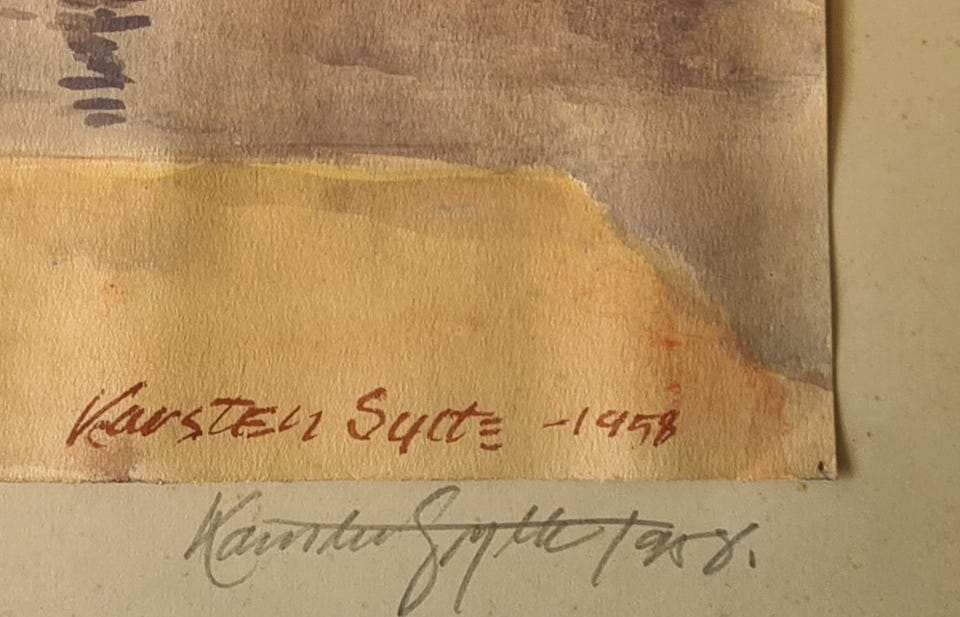 Karsten Sylte -1958
Karsten Sylte 1958.